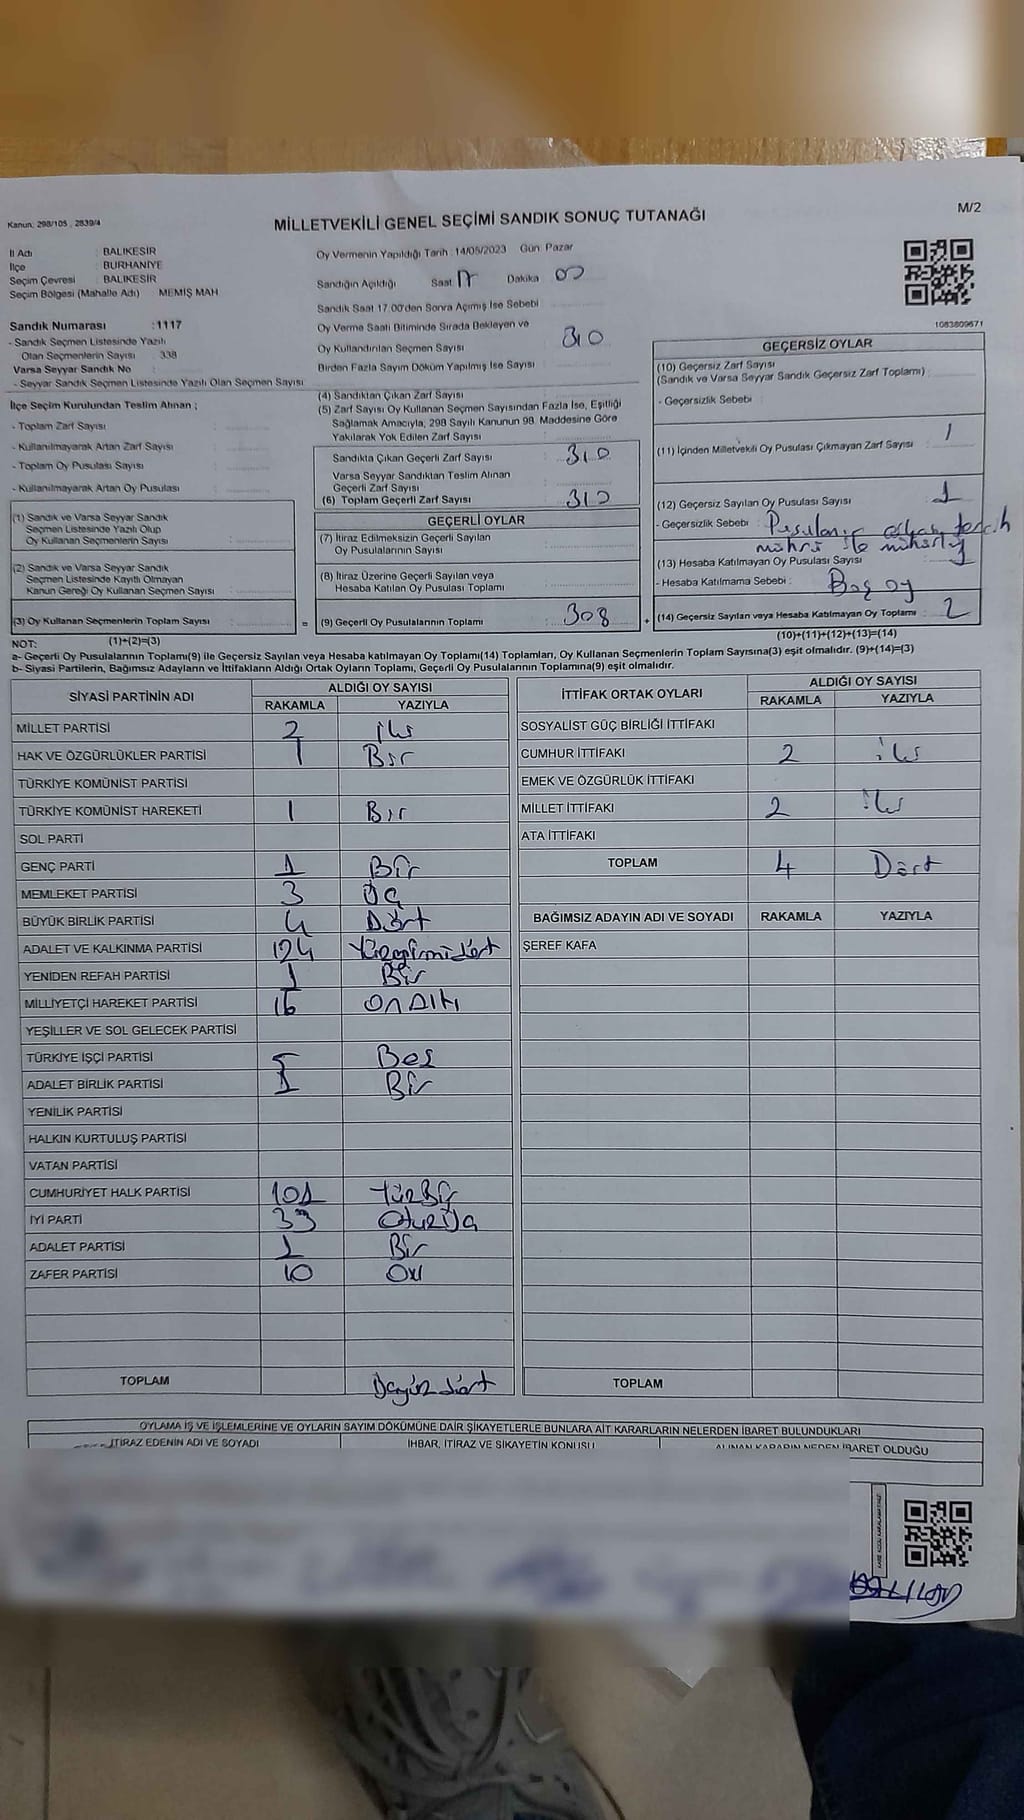 Kanun: 298/105 , 2839/4
MİLLETVEKİLİ GENEL SEÇİMİ SANDIK SONUÇ TUTANAĞI
M/2
İl Adı : BALIKESİR
İlçe : BURHANİYE
Seçim Çevresi : BALIKESİR
Seçim Bölgesi (Mahalle Adı) MEMİŞ MAH
Sandık Numarası :1117
- Sandık Seçmen Listesinde Yazılı
Olan Seçmenlerin Sayısı : 338
Varsa Seyyar Sandık No
- Seyyar Sandık Seçmen Listesinde Yazılı Olan Seçmen Sayısı
Oy Vermenin Yapıldığı Tarih : 14/05/2023 Gün: Pazar
Sandığın Açıldığı Saat 17 Dakika 00
Sandık Saat 17.00'den Sonra Açılmış İse Sebebi
Oy Verme Saati Bitiminde Sırada Bekleyen ve
Oy Kullandırılan Seçmen Sayısı 310
Birden Fazla Sayım Döküm Yapılmış İse Sayısı :
1083809671
İlçe Seçim Kurulundan Teslim Alınan ;
- Toplam Zarf Sayısı :
- Kullanılmayarak Artan Zarf Sayısı :
- Toplam Oy Pusulası Sayısı :
- Kullanılmayarak Artan Oy Pusulası :
(1) Sandık ve Varsa Seyyar Sandık
Seçmen Listesinde Yazılı Olup
Oy Kullanan Seçmenlerin Sayısı :
(2) Sandık ve Varsa Seyyar Sandık
Seçmen Listesinde Kayıtlı Olmayan
Kanun Gereği Oy Kullanan Seçmen Sayısı :
(3) Oy Kullanan Seçmenlerin Toplam Sayısı :
(1)+(2)=(3)
(4) Sandıktan Çıkan Zarf Sayısı :
(5) Zarf Sayısı Oy Kullanan Seçmen Sayısından Fazla İse, Eşitliği
Sağlamak Amacıyla, 298 Sayılı Kanunun 98. Maddesine Göre
Yakılarak Yok Edilen Zarf Sayısı :
Sandıkta Çıkan Geçerli Zarf Sayısı : 310
Varsa Seyyar Sandıktan Teslim Alınan
Geçerli Zarf Sayısı :
(6) Toplam Geçerli Zarf Sayısı : 310
GEÇERLİ OYLAR
(7) İtiraz Edilmeksizin Geçerli Sayılan
Oy Pusulalarının Sayısı :
(8) İtiraz Üzerine Geçerli Sayılan veya
Hesaba Katılan Oy Pusulası Toplamı :
= (9) Geçerli Oy Pusulalarının Toplamı : 308
GEÇERSİZ OYLAR
(10) Geçersiz Zarf Sayısı
(Sandık ve Varsa Seyyar Sandık Geçersiz Zarf Toplamı) :
- Geçersizlik Sebebi :
(11) İçinden Milletvekili Oy Pusulası Çıkmayan Zarf Sayısı : 1
(12) Geçersiz Sayılan Oy Pusulası Sayısı : 1
- Geçersizlik Sebebi : tercih
mührü ile
(13) Hesaba Katılmayan Oy Pusulası Sayısı : 1
- Hesaba Katılmama Sebebi : Boş oy
+ (14) Geçersiz Sayılan veya Hesaba Katılmayan Oy Toplamı : 2
(10)+(11)+(12)+(13)=(14)
NOT:
a- Geçerli Oy Pusulalarının Toplamı(9) ile Geçersiz Sayılan veya Hesaba katılmayan Oy Toplamı(14) Toplamları, Oy Kullanan Seçmenlerin Toplam Sayısına(3) eşit olmalıdır. (9)+(14)=(3)
b- Siyasi Partilerin, Bağımsız Adayların ve İttifakların Aldığı Ortak Oyların Toplamı, Geçerli Oy Pusulalarının Toplamına(9) eşit olmalıdır.
SİYASİ PARTİNİN ADI ALDIĞI OY SAYISI
RAKAMLA YAZIYLA
MİLLET PARTİSİ 2 iki
HAK VE ÖZGÜRLÜKLER PARTİSİ 1 Bir
TÜRKİYE KOMÜNİST PARTİSİ
TÜRKİYE KOMÜNİST HAREKETİ 1 Bir
SOL PARTİ
GENÇ PARTİ 1 Bir
MEMLEKET PARTİSİ 3 Üç
BÜYÜK BİRLİK PARTİSİ 4 Dört
ADALET VE KALKINMA PARTİSİ 124 Yüzyirmidört
YENİDEN REFAH PARTİSİ 1 Bir
MİLLİYETÇİ HAREKET PARTİSİ 16 On Altı
YEŞİLLER VE SOL GELECEK PARTİSİ
TÜRKİYE İŞÇİ PARTİSİ 5 Beş
ADALET BİRLİK PARTİSİ 1 Bir
YENİLİK PARTİSİ
HALKIN KURTULUŞ PARTİSİ
VATAN PARTİSİ
CUMHURİYET HALK PARTİSİ 101 YüzBir
İYİ PARTİ 33 OtuzÜç
ADALET PARTİSİ 1 Bir
ZAFER PARTİSİ 10 On
TOPLAM
İTTİFAK ORTAK OYLARI ALDIĞI OY SAYISI
RAKAMLA YAZIYLA
SOSYALİST GÜÇ BİRLİĞİ İTTİFAKI
CUMHUR İTTİFAKI 2 iki
EMEK VE ÖZGÜRLÜK İTTİFAKI
MİLLET İTTİFAKI 2 iki
ATA İTTİFAKI
TOPLAM 4 Dört
BAĞIMSIZ ADAYIN ADI VE SOYADI RAKAMLA YAZIYLA
ŞEREF KAFA
TOPLAM
OYLAMA İŞ VE İŞLEMLERİNE VE OYLARIN SAYIM DÖKÜMÜNE DAİR ŞİKAYETLERLE BUNLARA AİT KARARLARIN NELERDEN İBARET BULUNDUKLARI
İTİRAZ EDENİN ADI VE SOYADI İHBAR, İTİRAZ VE ŞİKAYETİN KONUSU ALINAN KARARIN NEDEN İBARET OLDUĞU